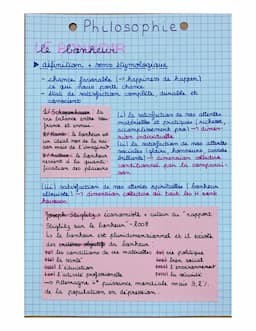 Philosophie
le bonheur
▶ définition + sens étymologique
- chance favorable (→ happiness de happen)
ce qui nous porte chance
- état de satisfaction complète, durable et
conscient
1) Schopenhauer : la
vie balance entre souf-
france et ennui.
2) Kant : le bonheur est
un idéal non de la rai-
son mais de l'imagination
le bonheur
revient à la quanti-
fication des plaisirs
(i) la satisfaction de nos attentes
matérielles et pratiques (richesse,
accomplissement pro) → dimen-
sion individuelle
(ii) la satisfaction de nos attentes
sociales (gloire, honneurs,
brillante) → dimension collective
conditionnel par la comparai-
son
(iii) satisfaction de nos attentes spirituelles (bonheur
altruiste) → dimension collective où tous les
heureux
Joseph Stiglitz : économiste + auteur du "rapport
Stiglitz sur le bonheur" - 2008
Le bonheur est pluridimensionnel et il existe
des du bonheur
les conditions de vie matérielles
la santé
l'éducation
l'activité professionnelle
vie politique
lien social
l'environnement
la sécurité
→ Allemagne 4e puissance mondiale mais 9,2%
de la population en dépression.